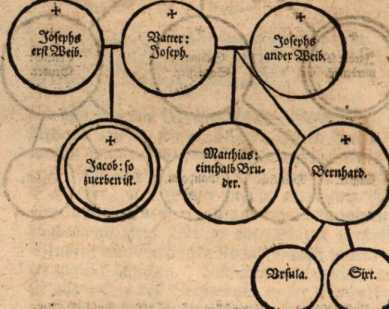 Josephs
erst Weib.
Vatter:
Joseph.
Josephs
ander Weib.
Jacob: so
zuerben ist.
Matthias:
einthalb Bru-
der.
Bernhard.
Vrsula.
Sixt.